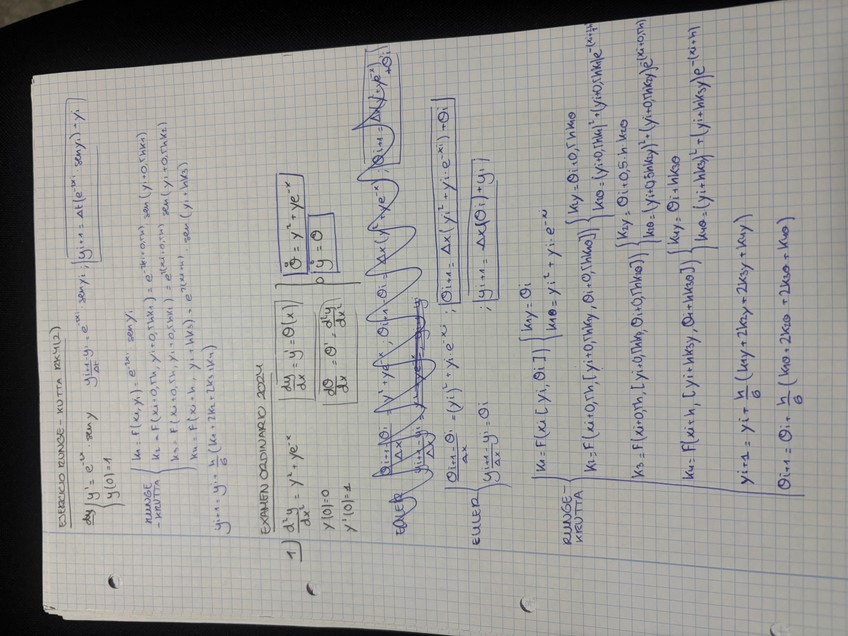 EJERCICIO RUNGE-KUTTA RK4(2)
dy { y' = e^-2x sen y
y(0)=1
yi+1-yi = e^-2xi sen yi ; yi+1 = Δt(e^-2xi sen yi) - yi
RUNGE - KUTTA
K1 = F(xi,yi) = e^-2xi sen yi
K2 = F(xi+0,5h, yi+0,5hK1) = e^-2(xi+0,5h) sen(yi+0,5hK1)
K3 = F(xi+0,5h, yi+0,5hK2) = e^-2(xi+0,5h) sen(yi+0,5hK2)
K4 = F(xi+h, yi+hK3) = e^-2(xi+h) sen(yi+hK3)
yi+1 = yi + h/6 (K1+2K2+2K3+K4)
EXAMEN ORDINARIO 2024
1) d²y/dx² = y² + ye^-x
dy/dx = y' = θ(x)
θ̇ = y² + ye^-x
y(0)=0
y'(0)=1
dθ/dx = θ' = d²y/dx²
ẏ = θ
EULER
θi+1-θi/Δx = y² + ye^-x ; θi+1-θi = Δx(y²+ye^-x) ; θi+1 = Δx(y²+ye^-x)+θi
EULER
θi+1-θi/Δx = (yi)² + yi e^-xi ; θi+1 = Δx(yi² + yi·e^-xi)+θi
yi+1-yi/Δx = θi ; yi+1 = Δx(θi)+yi
RUNGE- KUTTA
K1 = F(xi [yi, θi]) { K1y = θi
K1θ = yi² + yi·e^-xi
K2 = F(xi+0,5h, [yi+0,5hK1y, θi+0,5hK1θ]) { K2y = θi+0,5hK1θ
K2θ = (yi+0,5hK1)²+(yi+0,5hK1)e^-(xi+0,5h)
K3 = F(xi+0,5h, [yi+0,5hK2, θi+0,5hK2θ]) { K2y = θi+0,5·h·K2θ
K3θ = (yi+0,5hK2y)²+(yi+0,5hK2y)e^(xi+0,5h)
K4 = F(xi+h, [yi+hK3y, θi+hK3θ]) { K4y = θi+hK3θ
K4θ = (yi+hK3y)² + (yi+hK3y)e^-(xi+h)
yi+1 = yi + h/6 (K1y+2K2y+2K3y+K4y)
θi+1 = θi + h/6 (K1θ+2K2θ+2K3θ+K4θ)